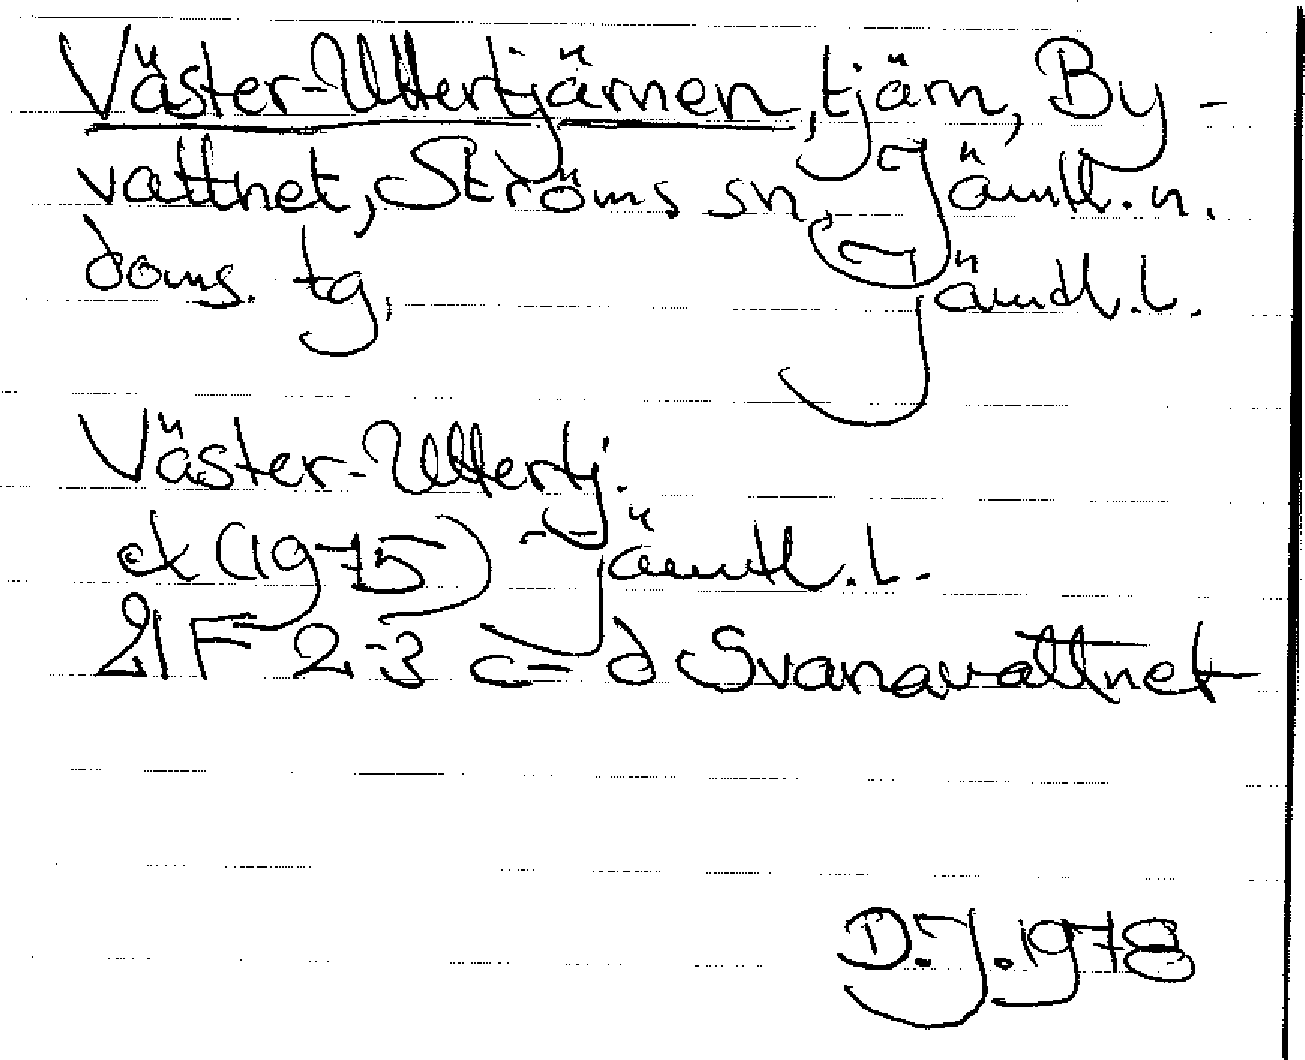 Väster-Uttertjärnen, tjärn, By-
vattnet, Ströms sn, Jämtl. n.
doms. tg, Jämtl. l.
Väster-Uttertj.
ek (1975) Jämtl. l.
21F 2-3 c-d Svanavattnet
D.J. 1978